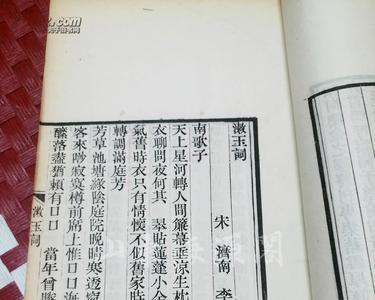 漱玉詞
宋 濟南 李
南歌子
天上星河轉人間簾幕垂涼生枕
衣聊問夜何其 翠貼蓮蓬小金
氣舊時衣只有情懷不似舊家時
轉調滿庭芳
芳草池塘綠陰庭院晚晴寒透窗
客來唦寂寞樽前席上惟□□海
釄落盡猶賴有□□ 當年曾勝
漱玉詞